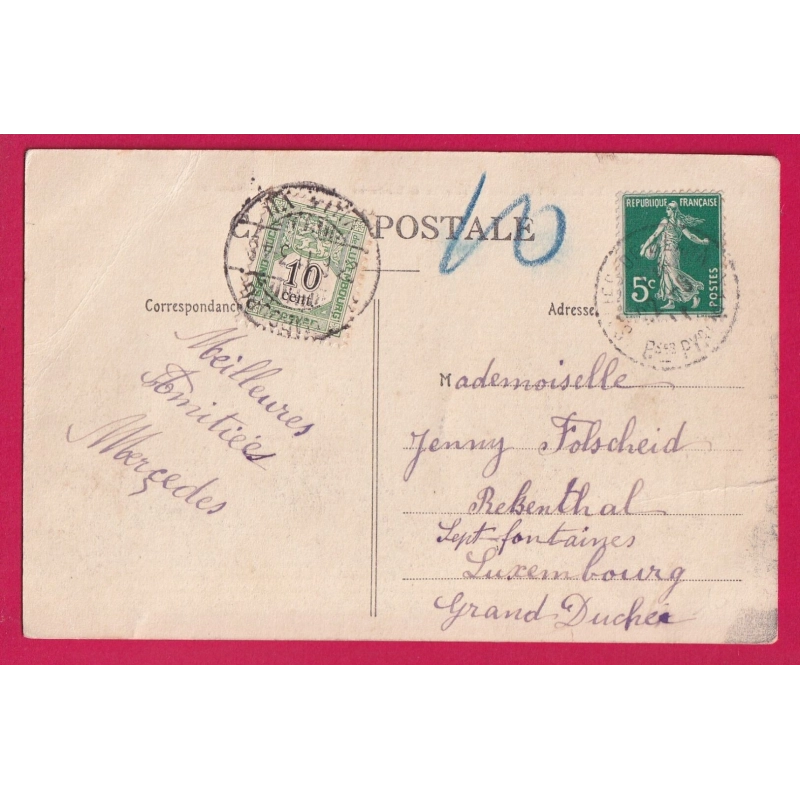 CA POSTALE
RÉPUBLIQUE FRANÇAISE
5c
POSTES
10
LUXEMBOURG
10
cent
Correspondance
Adresse
Meilleures
Amitiées
Mercedes
Mademoiselle
Jenny Folscheid
Sept fontaines
Luxembourg
Grand Duché